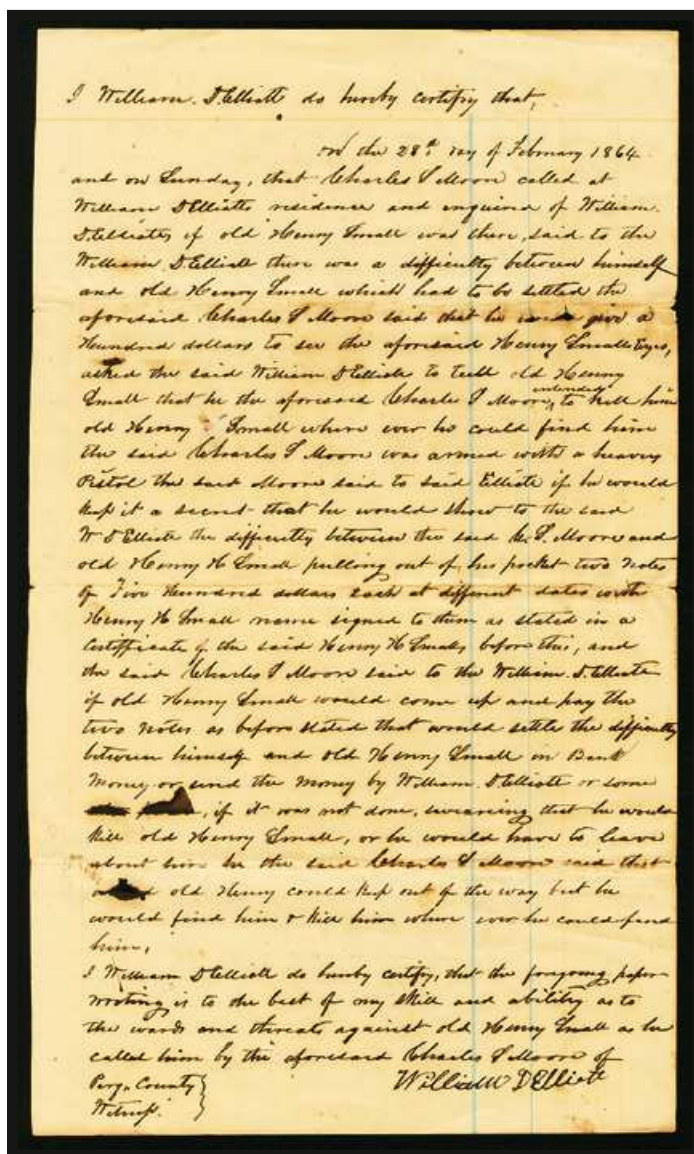 I William. D. Elliott do hereby certify that,
on the 28th day of February 1864
and on Sunday, that Charles S Moore called at
William D Elliotts residence and enquired of William.
D. Elliotts if old Henry Small was there, said to the
William. D. Elliott there was a difficulty between himself
and old Henry Small which had to be settled the
aforesaid Charles S Moore said that he give a
Hundred dollars to see the aforesaid Henry Small Eyes,
asked the said William D Elliott to tell old Henry
Small that he the aforesaid Charles S Moore, intended to kill him
old Henry Small where ever he could find him
the said Charles S Moore was armed with a heavy
Pistol the said Moore said to said Elliott if he would
keep it a secret that he would show to the said
W D Elliott the difficulty between the said C. S. Moore and
old Henry H Small pulling out of his pocket two notes
of Five Hundred dollars each at different dates with
Henry H Small name signed to them as stated in a
Certificate of the said Henry H Smalls before this, and
the said Charles S Moore said to the William. D. Elliott
if old Henry Small would come up and pay the
two notes as before stated that would settle the difficulty
between himself and old Henry Small in Bank
Money or send the money by William. D Elliott or some
, if it was not done, swearing that he would
kill old Henry Small, or he would have to leave
about him he the said Charles S Moore said that
old Henry could keep out of the way but he
would find him & kill him where ever he could find
him,
I William D Elliott do hereby certify, that the foregoing paper
writing is to the best of my skill and ability as to
the words and threats against old Henry Small as he
called him by the aforesaid Charles S Moore of
Perq. County }
Witness. }
William D Elliott